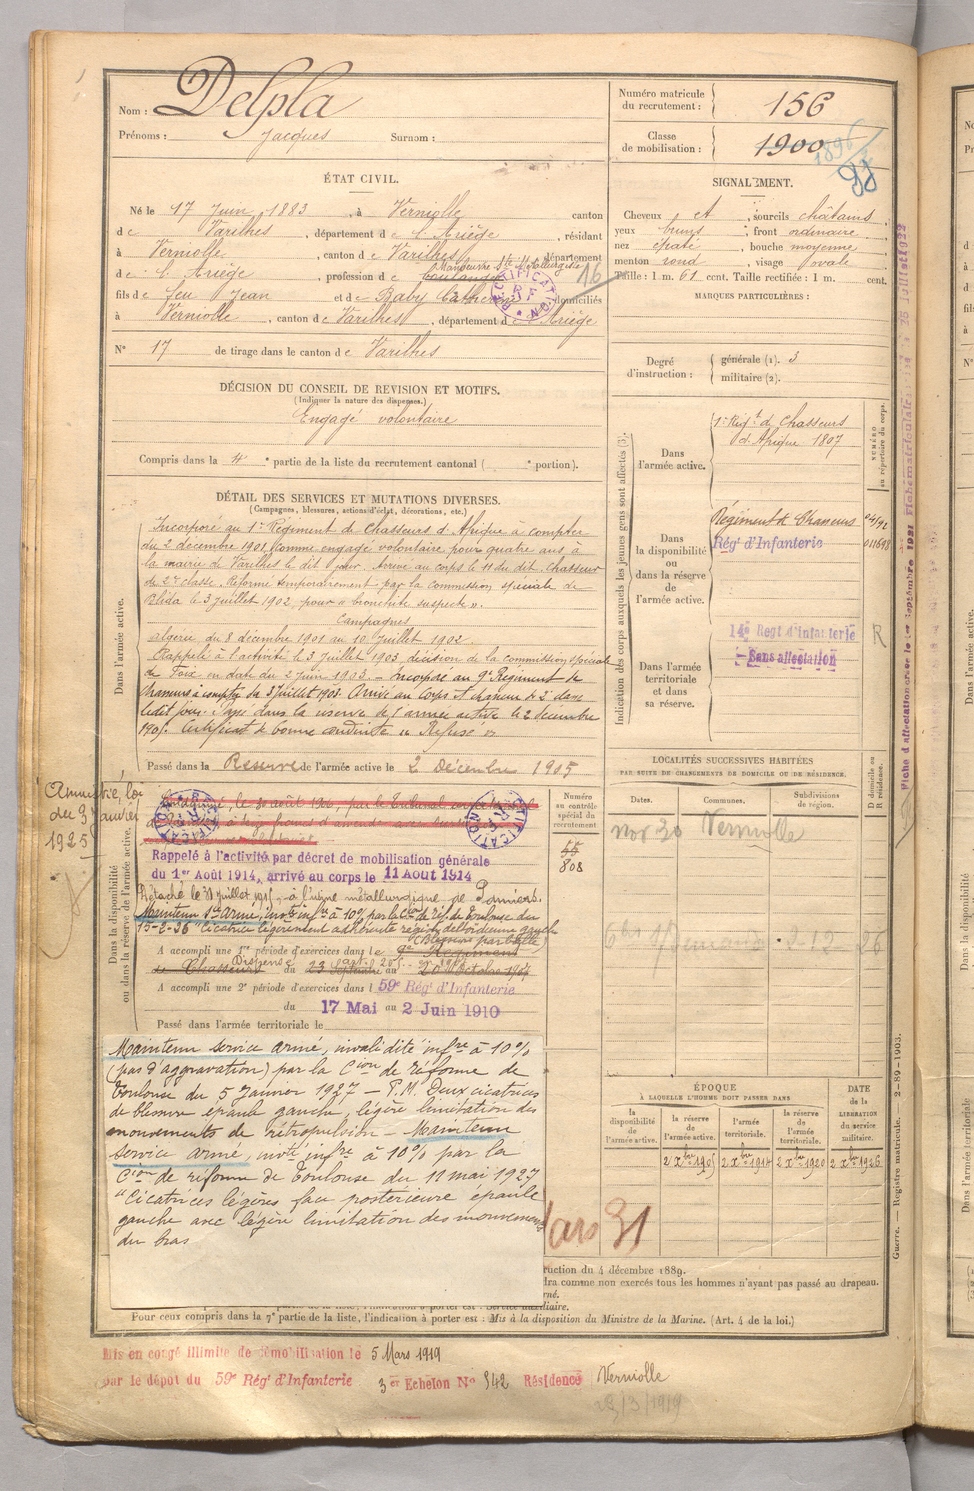 Nom : Delpla
Prénoms : Jacques Surnom :
Numéro matricule du recrutement : 156
Classe de mobilisation : 1900
1896
ÉTAT CIVIL.
Né le 17 Juin 1883, à Verniolle canton
de Varilhes, département de l'Ariège, résidant
à Verniolle, canton de Varilhes, département
Manœuvre Sté Métallurgiste
de l'Ariège, profession de boulanger
16
fils de feu Jean et de Baby Catherine domiciliés
à Verniolle, canton de Varilhes, département de l'Ariège
N° 17 de tirage dans le canton de Varilhes
SIGNALEMENT.
Cheveux et sourcils châtains
yeux bruns, front ordinaire
nez épaté, bouche moyenne
menton rond, visage ovale
Taille : 1 m. 61 cent. Taille rectifiée : 1 m. cent.
MARQUES PARTICULIÈRES :
Degré d'instruction : générale (1). 3
militaire (2).
DÉCISION DU CONSEIL DE REVISION ET MOTIFS.
(Indiquer la nature des dispenses.)
Engagé volontaire
Compris dans la 4e partie de la liste du recrutement cantonal ( e portion).
DÉTAIL DES SERVICES ET MUTATIONS DIVERSES.
(Campagnes, blessures, actions d'éclat, décorations, etc.)
Dans l'armée active.
Incorporé au 1er Régiment de Chasseurs d'Afrique à compter
du 2 décembre 1901 comme engagé volontaire pour quatre ans à
la mairie de Varilhes le dit jour. Arrivé au corps le 11 du dit. Chasseur
de 2e classe. Réformé temporairement par la commission spéciale de
Blida le 3 juillet 1902, pour « bronchite suspecte ».
Campagnes
Algérie, du 8 décembre 1901 au 10 Juillet 1902.
Rappelé à l'activité le 3 juillet 1903, décision de la commission spéciale
de Foix en date du 2 juin 1903. - Incorporé au 9e Régiment de
Chasseurs à compter du 3 Juillet 1903. Arrivé au Corps et chasseur de 2e classe
ledit jour. Passé dans la réserve de l'armée active le 2 décembre
1905. Certificat de bonne conduite "Refusé"
Passé dans la Réserve de l'armée active le 2 Décembre 1905
Indication des corps auxquels les jeunes gens sont affectés (3).
NUMÉRO au répertoire du corps.
Dans l'armée active.
1er Régt de Chasseurs
d'Afrique 1807
Dans la disponibilité ou dans la réserve de l'armée active.
Régiment de Chasseurs
Régt d'Infanterie 011698
Dans l'armée territoriale et dans sa réserve.
14e Regt d'Infanterie R
Sans affectation
Fiche d'affectation
LOCALITÉS SUCCESSIVES HABITÉES
PAR SUITE DE CHANGEMENTS DE DOMICILE OU DE RÉSIDENCE.
Dates. Communes. Subdivisions de région. Domicile ou résidence. D R
Nov 30 Verniolle
Amnistié, loi
du 3 Janvier
1925
Dans la disponibilité ou dans la réserve de l'armée active.
Numéro au contrôle spécial du recrutement
55
808
Rappelé à l'activité par décret de mobilisation générale
du 1er Août 1914, arrivé au corps le 11 Août 1914
Détaché le 31 juillet 1915, à l'usine métallurgique de Pamiers.
Maintenu Sce Armé, invté infre à 10% par la Cion de réf. de Toulouse du
15-2-26 "Cicatrice légèrement adhérente région deltoïdienne gauche
(Blessure par balle)
A accompli une 1re période d'exercices dans le 9e Régiment
de Chasseurs Dispensé du 23 Septembre au 20 Octobre 1907
A accompli une 2e période d'exercices dans l 59e Régt d'Infanterie
du 17 Mai au 2 Juin 1910
Passé dans l'armée territoriale le
Maintenu service armé, invalidité infre à 10%
(pas d'aggravation) par la Cion de réforme de
Toulouse du 5 Janvier 1927 - P.M. Deux cicatrices
de blessure épaule gauche, légère limitation des
mouvements de rétropulsion - Maintenu
service armé, invté infre à 10% par la
Cion de réforme de Toulouse du 11 mai 1927
"Cicatrices légères face postérieure épaule
gauche avec légère limitation des mouvements
du bras
ÉPOQUE
À LAQUELLE L'HOMME DOIT PASSER DANS
la disponibilité de l'armée active. la réserve de l'armée active. l'armée territoriale. la réserve de l'armée territoriale. DATE de la LIBÉRATION du service militaire.
2 Xbre 1905 2 Xbre 1914 2 Xbre 1920 2 Xbre 1926
Mars 31
ruction du 4 décembre 1889.
dra comme non exercés tous les hommes n'ayant pas passé au drapeau.
Pour ceux compris dans la 7e partie de la liste, l'indication à porter est : Mis à la disposition du Ministre de la Marine. (Art. 4 de la loi.)
Guerre. — Registre matricule. — 2-89-1903.
Mis en congé illimité de démobilisation le 5 Mars 1919
par le dépôt du 59e Régt d'Infanterie 3er Echelon No 342 Résidence Verniolle
25/3/1919